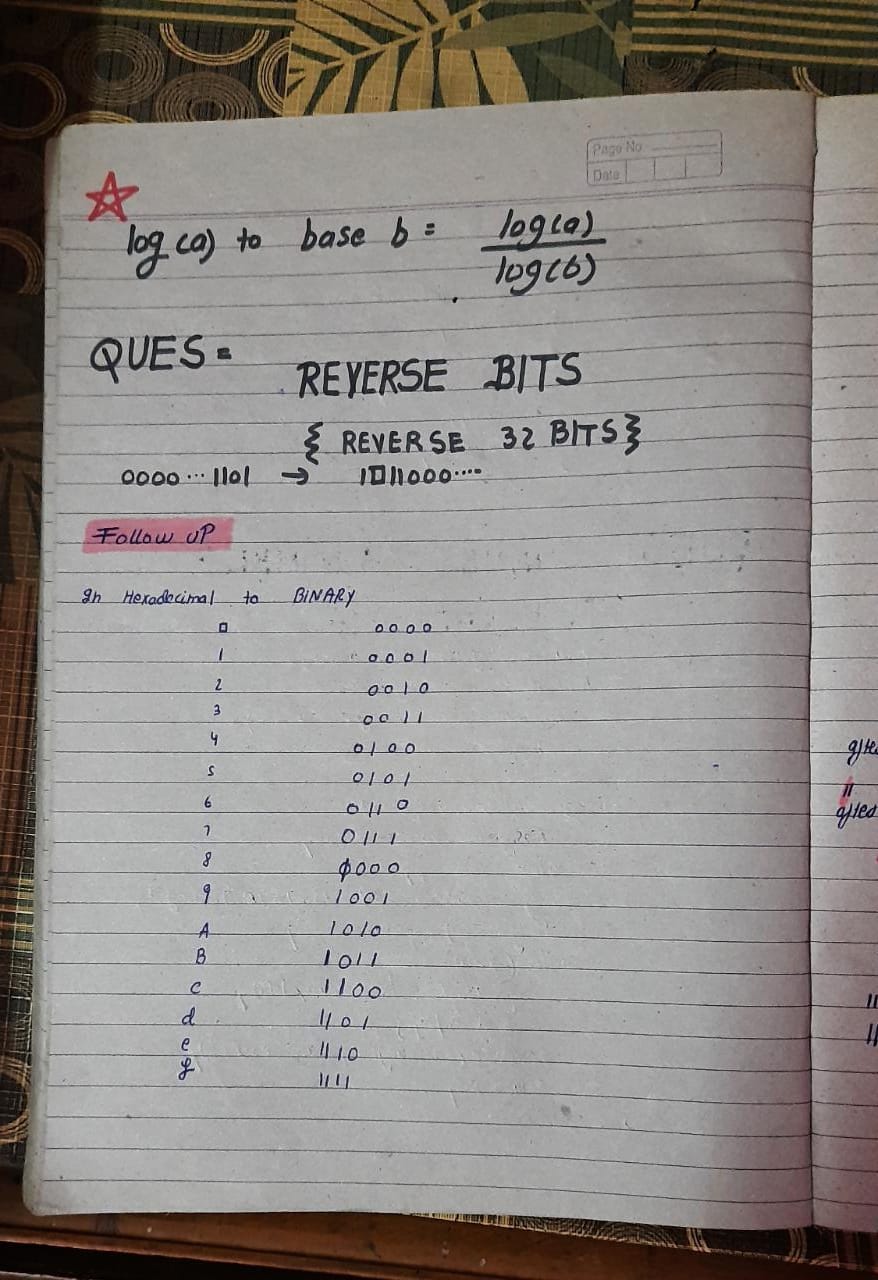 Page No
Date
log(a) to base b = log(a)
log(b)
QUES =
REVERSE BITS
{ REVERSE 32 BITS }
0000...1101 → 1011000....
Follow UP
In Hexadecimal to BINARY
0 0000
1 0001
2 0010
3 0011
4 0100
5 0101
6 0110
7 0111
8 1000
9 1001
A 1010
B 1011
c 1100
d 1101
e 1110
f 1111